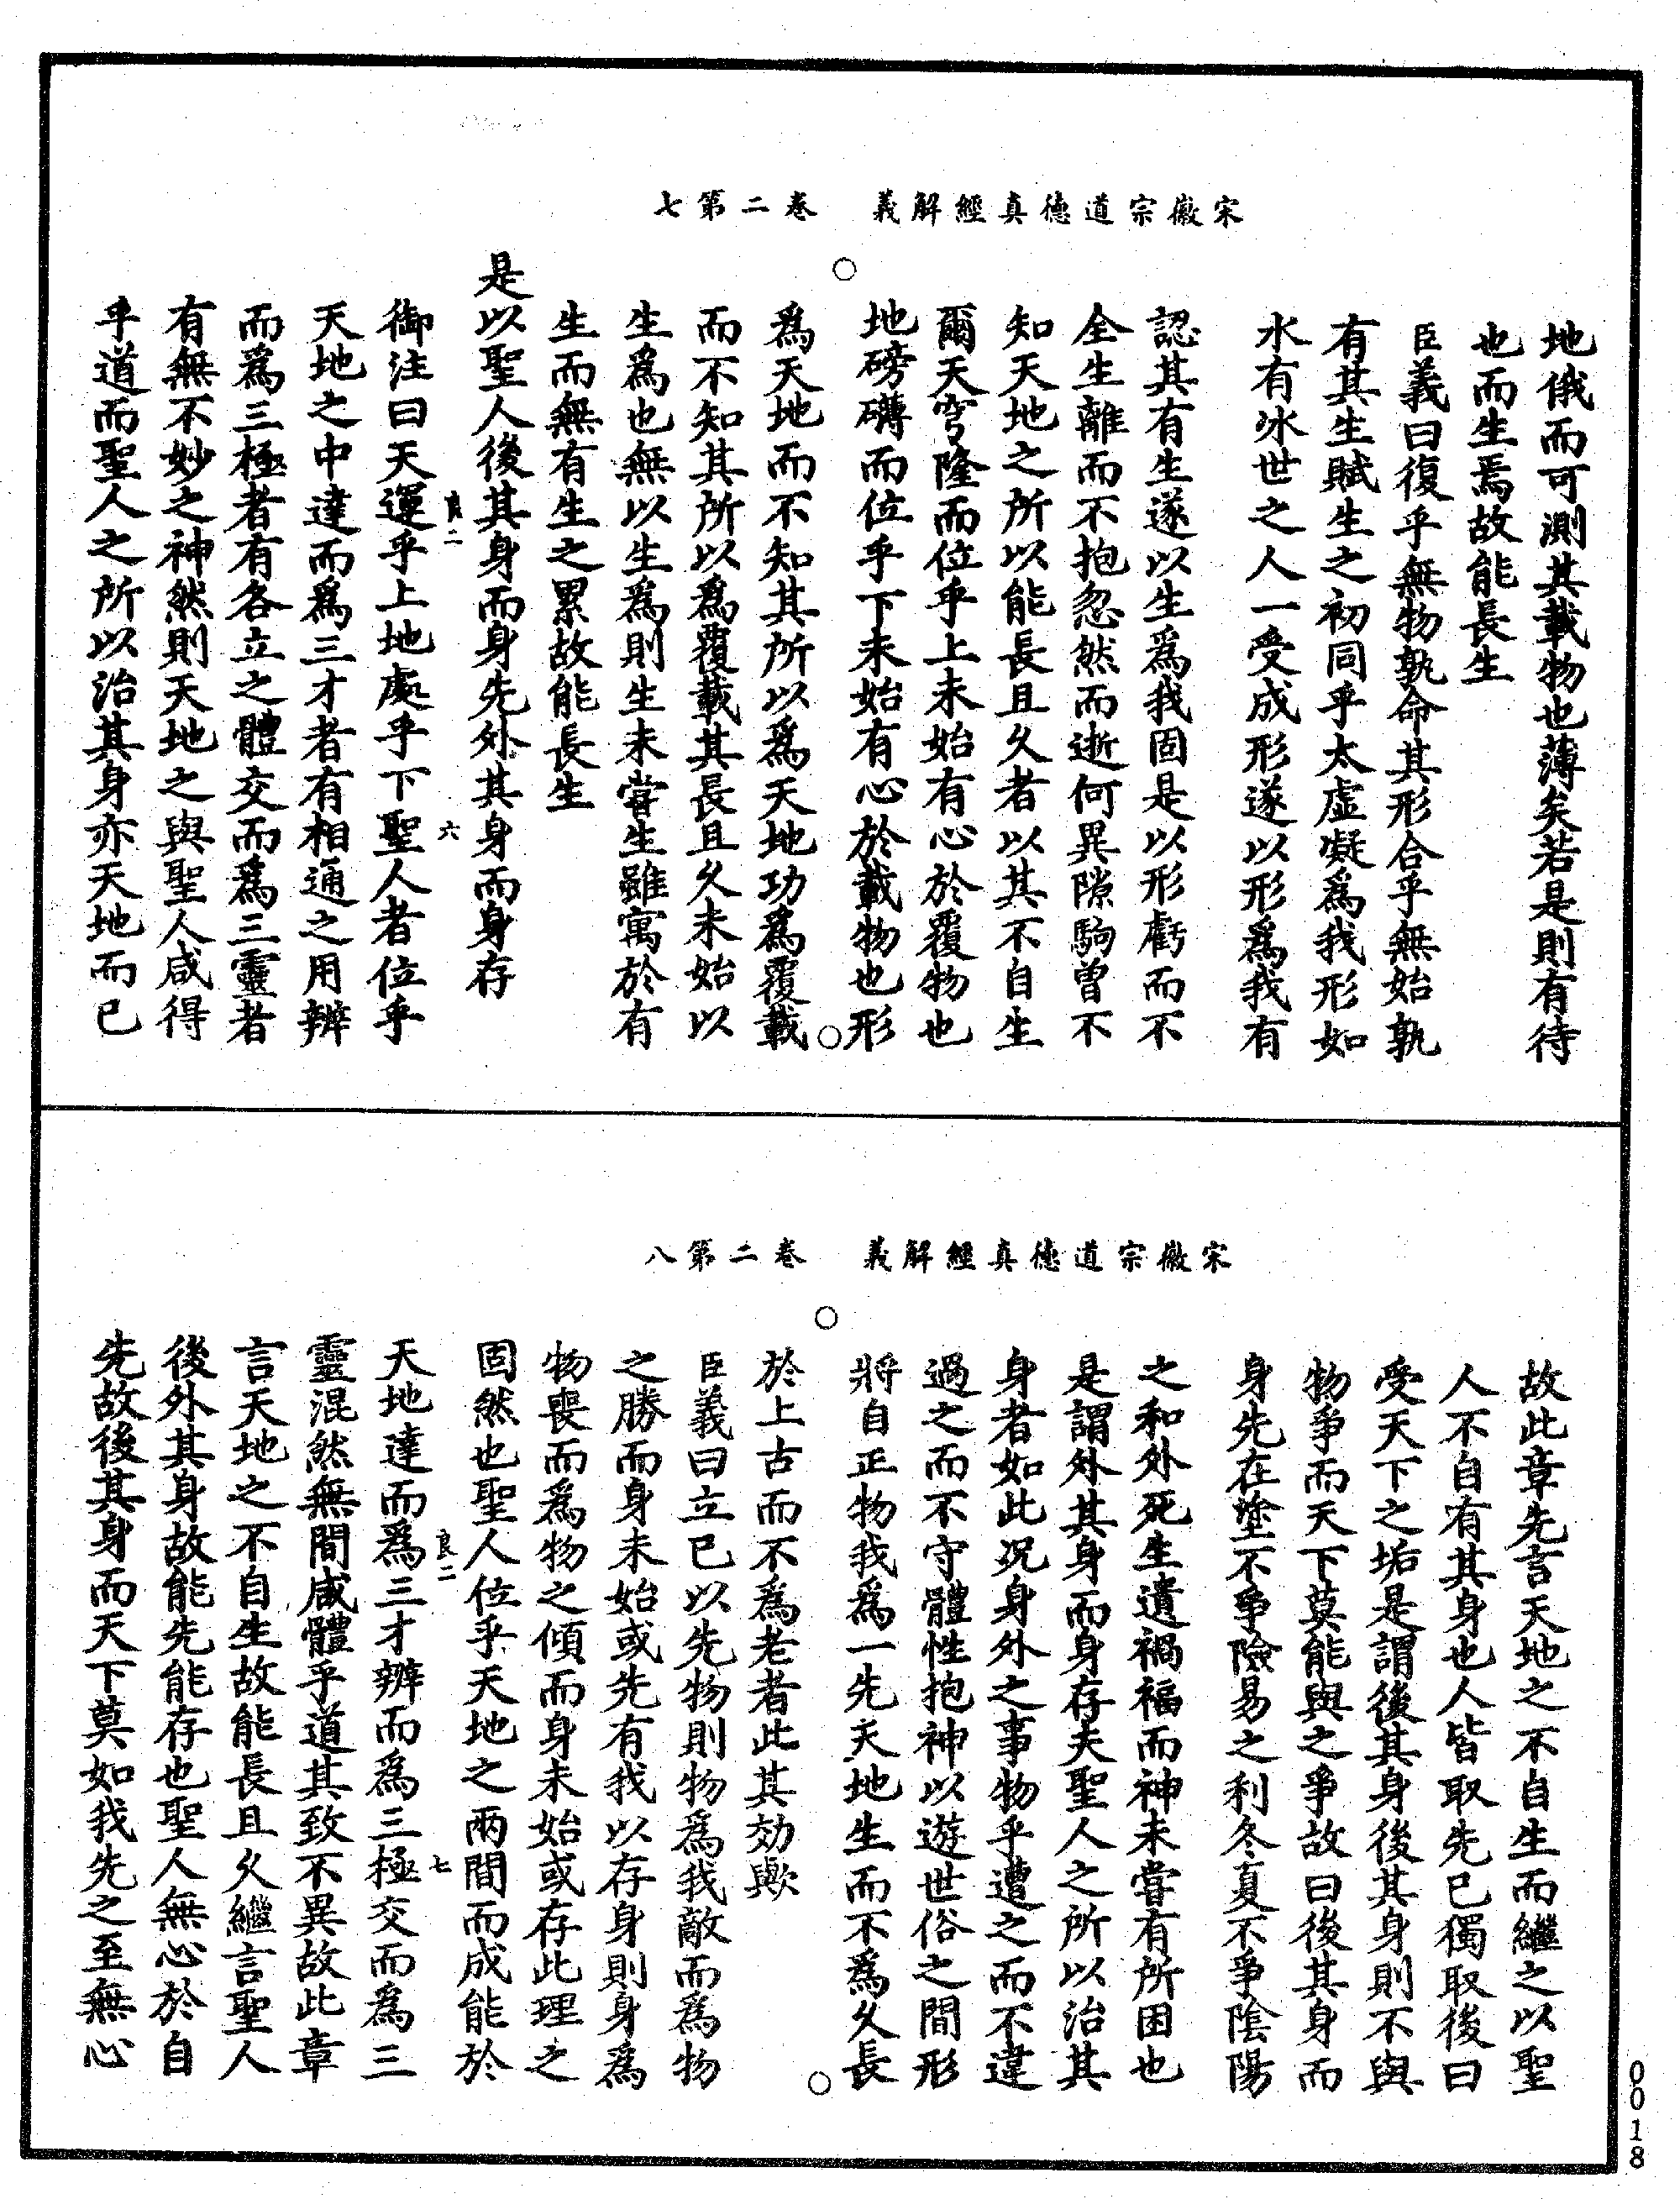 宋徽宗道德真經解義　卷二第七
地俄而可測其載物也薄矣若是則有待
也而生焉故能長生
臣義曰復乎無物孰命其形合乎無始孰
有其生賦生之初同乎太虛凝爲我形如
水有冰世之人一受成形遂以形爲我有
認其有生遂以生爲我固是以形虧而不
全生離而不抱忽然而逝何異隙駒曾不
知天地之所以能長且久者以其不自生
爾天穹隆而位乎上未始有心於覆物也
地磅礴而位乎下未始有心於載物也形
爲天地而不知其所以爲天地功爲覆載
而不知其所以爲覆載其長且久未始以
生爲也無以生爲則生未嘗生雖寓於有
生而無有生之累故能長生
是以聖人後其身而身先外其身而身存
良二　六
御注曰天運乎上地處乎下聖人者位乎
天地之中達而爲三才者有相通之用辨
而爲三極者有各立之體交而爲三靈者
有無不妙之神然則天地之與聖人咸得
乎道而聖人之所以治其身亦天地而已
宋徽宗道德真經解義　卷二第八
故此章先言天地之不自生而繼之以聖
人不自有其身也人皆取先已獨取後曰
受天下之垢是謂後其身後其身則不與
物爭而天下莫能與之爭故曰後其身而
身先在塗不爭險易之利冬夏不爭陰陽
之和外死生遺禍福而神未嘗有所困也
是謂外其身而身存夫聖人之所以治其
身者如此況身外之事物乎遭之而不違
過之而不守體性抱神以遊世俗之間形
將自正物我爲一先天地生而不爲久長
於上古而不爲老者此其効歟
臣義曰立已以先物則物爲我敵而爲物
之勝而身未始或先有我以存身則身爲
物喪而爲物之傾而身未始或存此理之
固然也聖人位乎天地之兩間而成能於
良二　七
天地達而爲三才辨而爲三極交而爲三
靈混然無間咸體乎道其致不異故此章
言天地之不自生故能長且久繼言聖人
後外其身故能先能存也聖人無心於自
先故後其身而天下莫如我先之至無心
0018